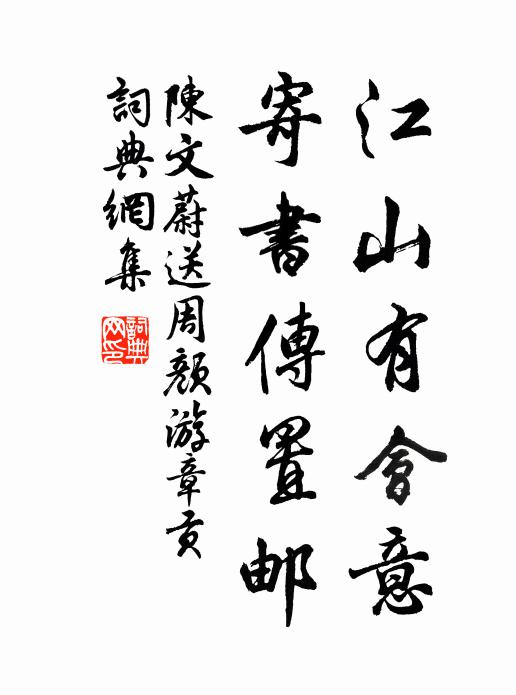 江山有會意
寄書傳置邮
陳文蔚送周顏游章貢
詞典網集
詞典
网印